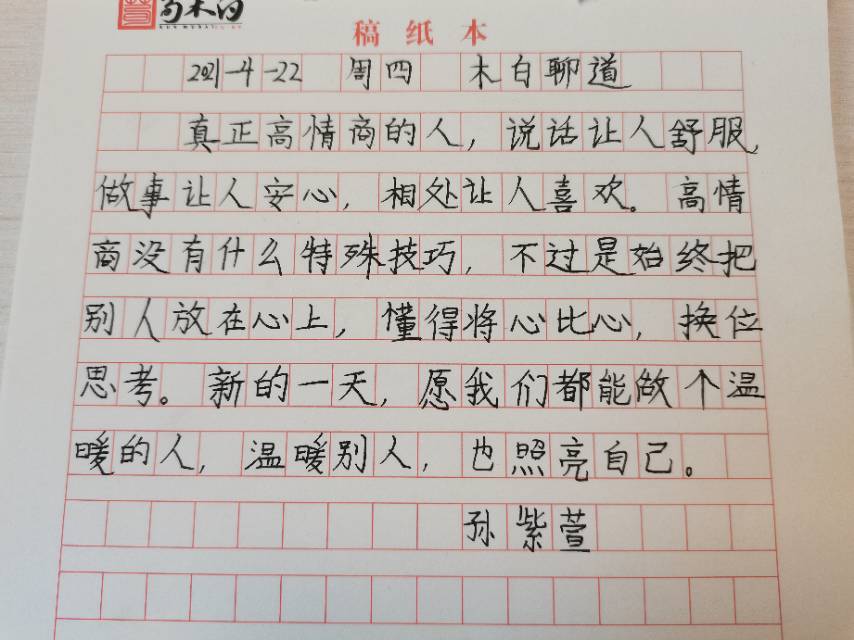 稿纸本
2021-4-22 周四 木白聊道
真正高情商的人，说话让人舒服，
做事让人安心，相处让人喜欢。高情
商没有什么特殊技巧，不过是始终把
别人放在心上，懂得将心比心，换位
思考。新的一天，愿我们都能做个温
暖的人，温暖别人，也照亮自己。
孙紫萱